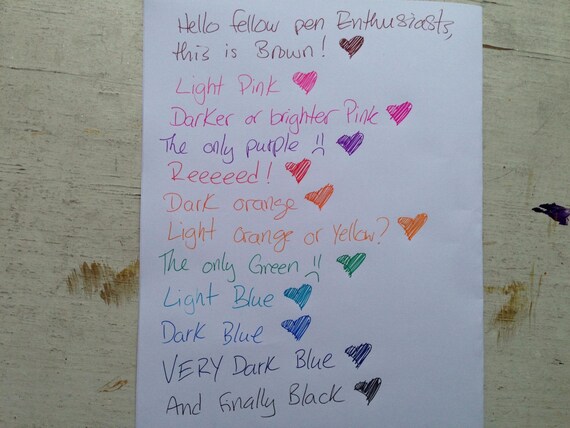 Hello fellow pen Enthusiasts,
this is Brown!
Light Pink
Darker or brighter Pink
The only purple !!
Reeeeed!
Dark orange
Light orange or yellow?
The only Green !!
Light Blue
Dark Blue
VERY Dark Blue
And Finally Black